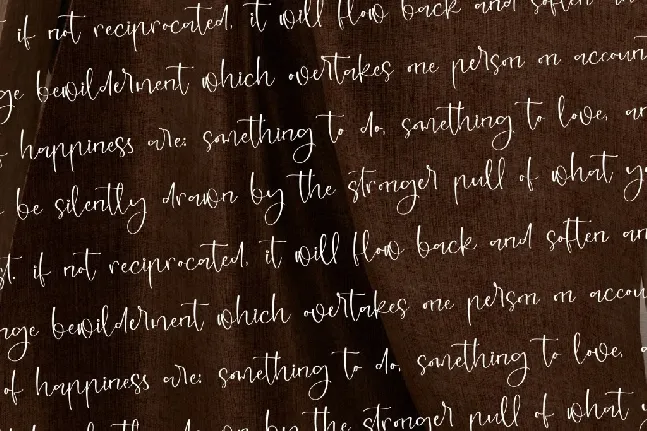 if not reciprocated, it will flow back and soften
bewilderment which overtakes one person on account
happiness are: something to do, something to love, an
be silently drawn by the stronger pull of what y
st. if not reciprocated, it will flow back and soften an
nge bewilderment which overtakes one person on accou
of happiness are: something to do, something to love,
drawn by the stronger pull of what y